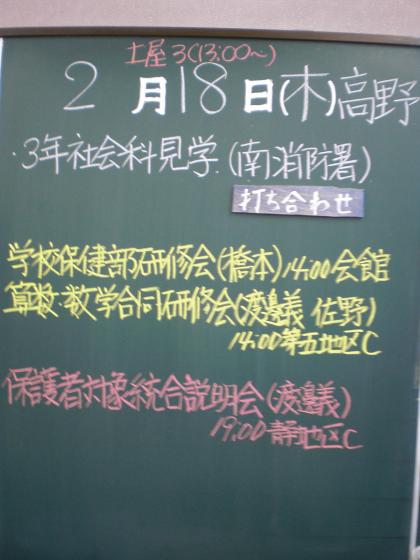 土屋3(13:00〜)
2月18日(木)高野
・3年社会科見学(南消防署)
打ち合わせ
学校保健部研修会(橋本)14:00会館
算数・数学合同研修会(渡邉義 佐野)
14:00第五地区C
保護者対象統合説明会(渡邉義)
19:00静地区C